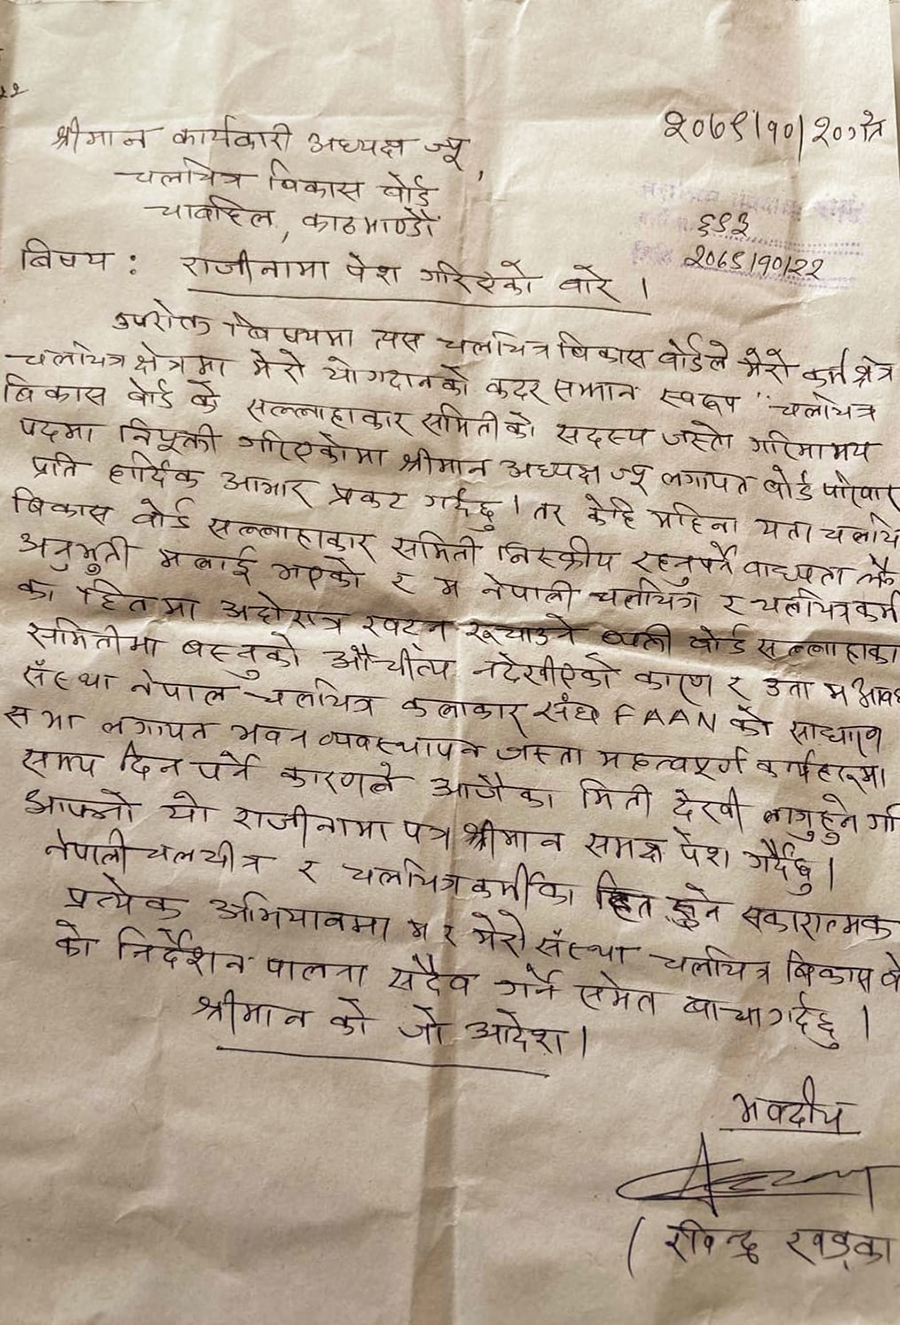 २०७९/१०/२० गते
श्रीमान कार्यकारी अध्यक्ष ज्यू,
चलचित्र विकास बोर्ड
चावहिल, काठमाण्डौं
६९३
२०७९/१०/२२
बिषय : राजीनामा पेश गरिएको बारे ।
उपरोक्त बिषयमा त्यस चलचित्र बिकास बोर्डले मेरो कर्म क्षेत्र
चलचित्र क्षेत्रमा मेरो योगदानको कदर सम्मान स्वरूप चलचित्र
बिकास बोर्ड को सल्लाहाकार समितीको सदस्य जस्तो गरिमामय
पदमा नियूक्ती गरिएकोमा श्रीमान अध्यक्ष ज्यू लगायत बोर्ड परिवार
प्रति हार्दिक आभार प्रकट गर्दछु । तर केहि महिना यता चलचि
बिकास बोर्ड सल्लाहाकार समिती निस्क्रीय रहनुपर्ने वाध्यता
अनुभुती मलाई भएको र म नेपाली चलचित्र र चलचित्रकर्मी
का हितमा अहोरात्र खट्न रूचाउने व्यक्ती बोर्ड सल्लाहाका
समितीमा बस्नुको औचीत्य नदेखीएको कारण र उता म आवद्ध
सँस्था नेपाल चलचित्र कलाकार संघ FAAN को साधारण
सभा लगायत भवन व्यवस्थापन जस्ता महत्वपूर्ण कार्यहरूमा
समय दिन पर्ने कारणले आजैका मिती देखी लागुहुने गरी
आफ्नो यो राजीनामा पत्र श्रीमान समक्ष पेश गर्दछु ।
नेपाली चलचीत्र र चलचित्रकर्मीका हित हुने सकारात्मक
प्रत्येक अभियानमा म र मेरो सँस्था चलचित्र बिकास बो
को निर्देशन पालना सदैव गर्ने समेत बाचा गर्दछु ।
श्रीमान को जो आदेश ।
भवदीय
( रविन्द्र खड्का